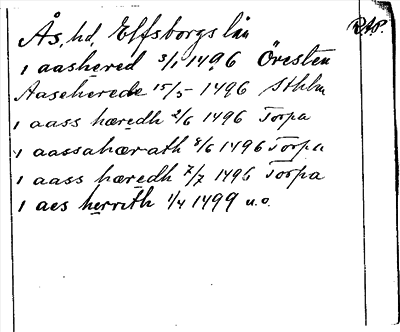 Ås, hd, Elfsborgs län RAP.
i aashered 3/1 1496 Öresten
Aaseherede 15/5 1496 Sthlm
i aass hæredh 2/6 1496 Torpa
i aassahærath 8/6 1496 Torpa
i aass hæredh 7/7 1496 Torpa
i aes herrith 1/4 1499 u.o.